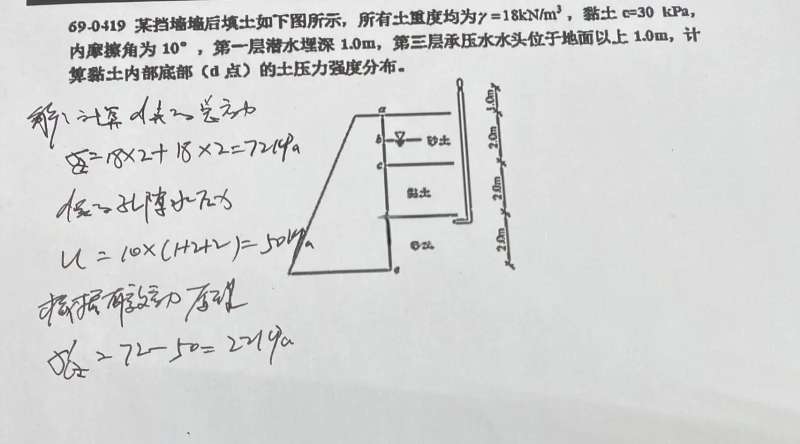 69-0419 某挡墙墙后填土如下图所示，所有土重度均为γ=18kN/m³，黏土 c=30 kPa，
内摩擦角为 10°，第一层潜水埋深 1.0m，第三层承压水水头位于地面以上 1.0m，计
算黏土内部底部（d 点）的土压力强度分布。
解：计算d点的总应力
σz=18×2+18×2=72kPa
d点的孔隙水压力
u=10×(1+2+2)=50kPa
根据有效应力原理
σ'z=72-50=22kPa
a
b
砂土
c
黏土
e
1.0m
2.0m
2.0m
2.0m